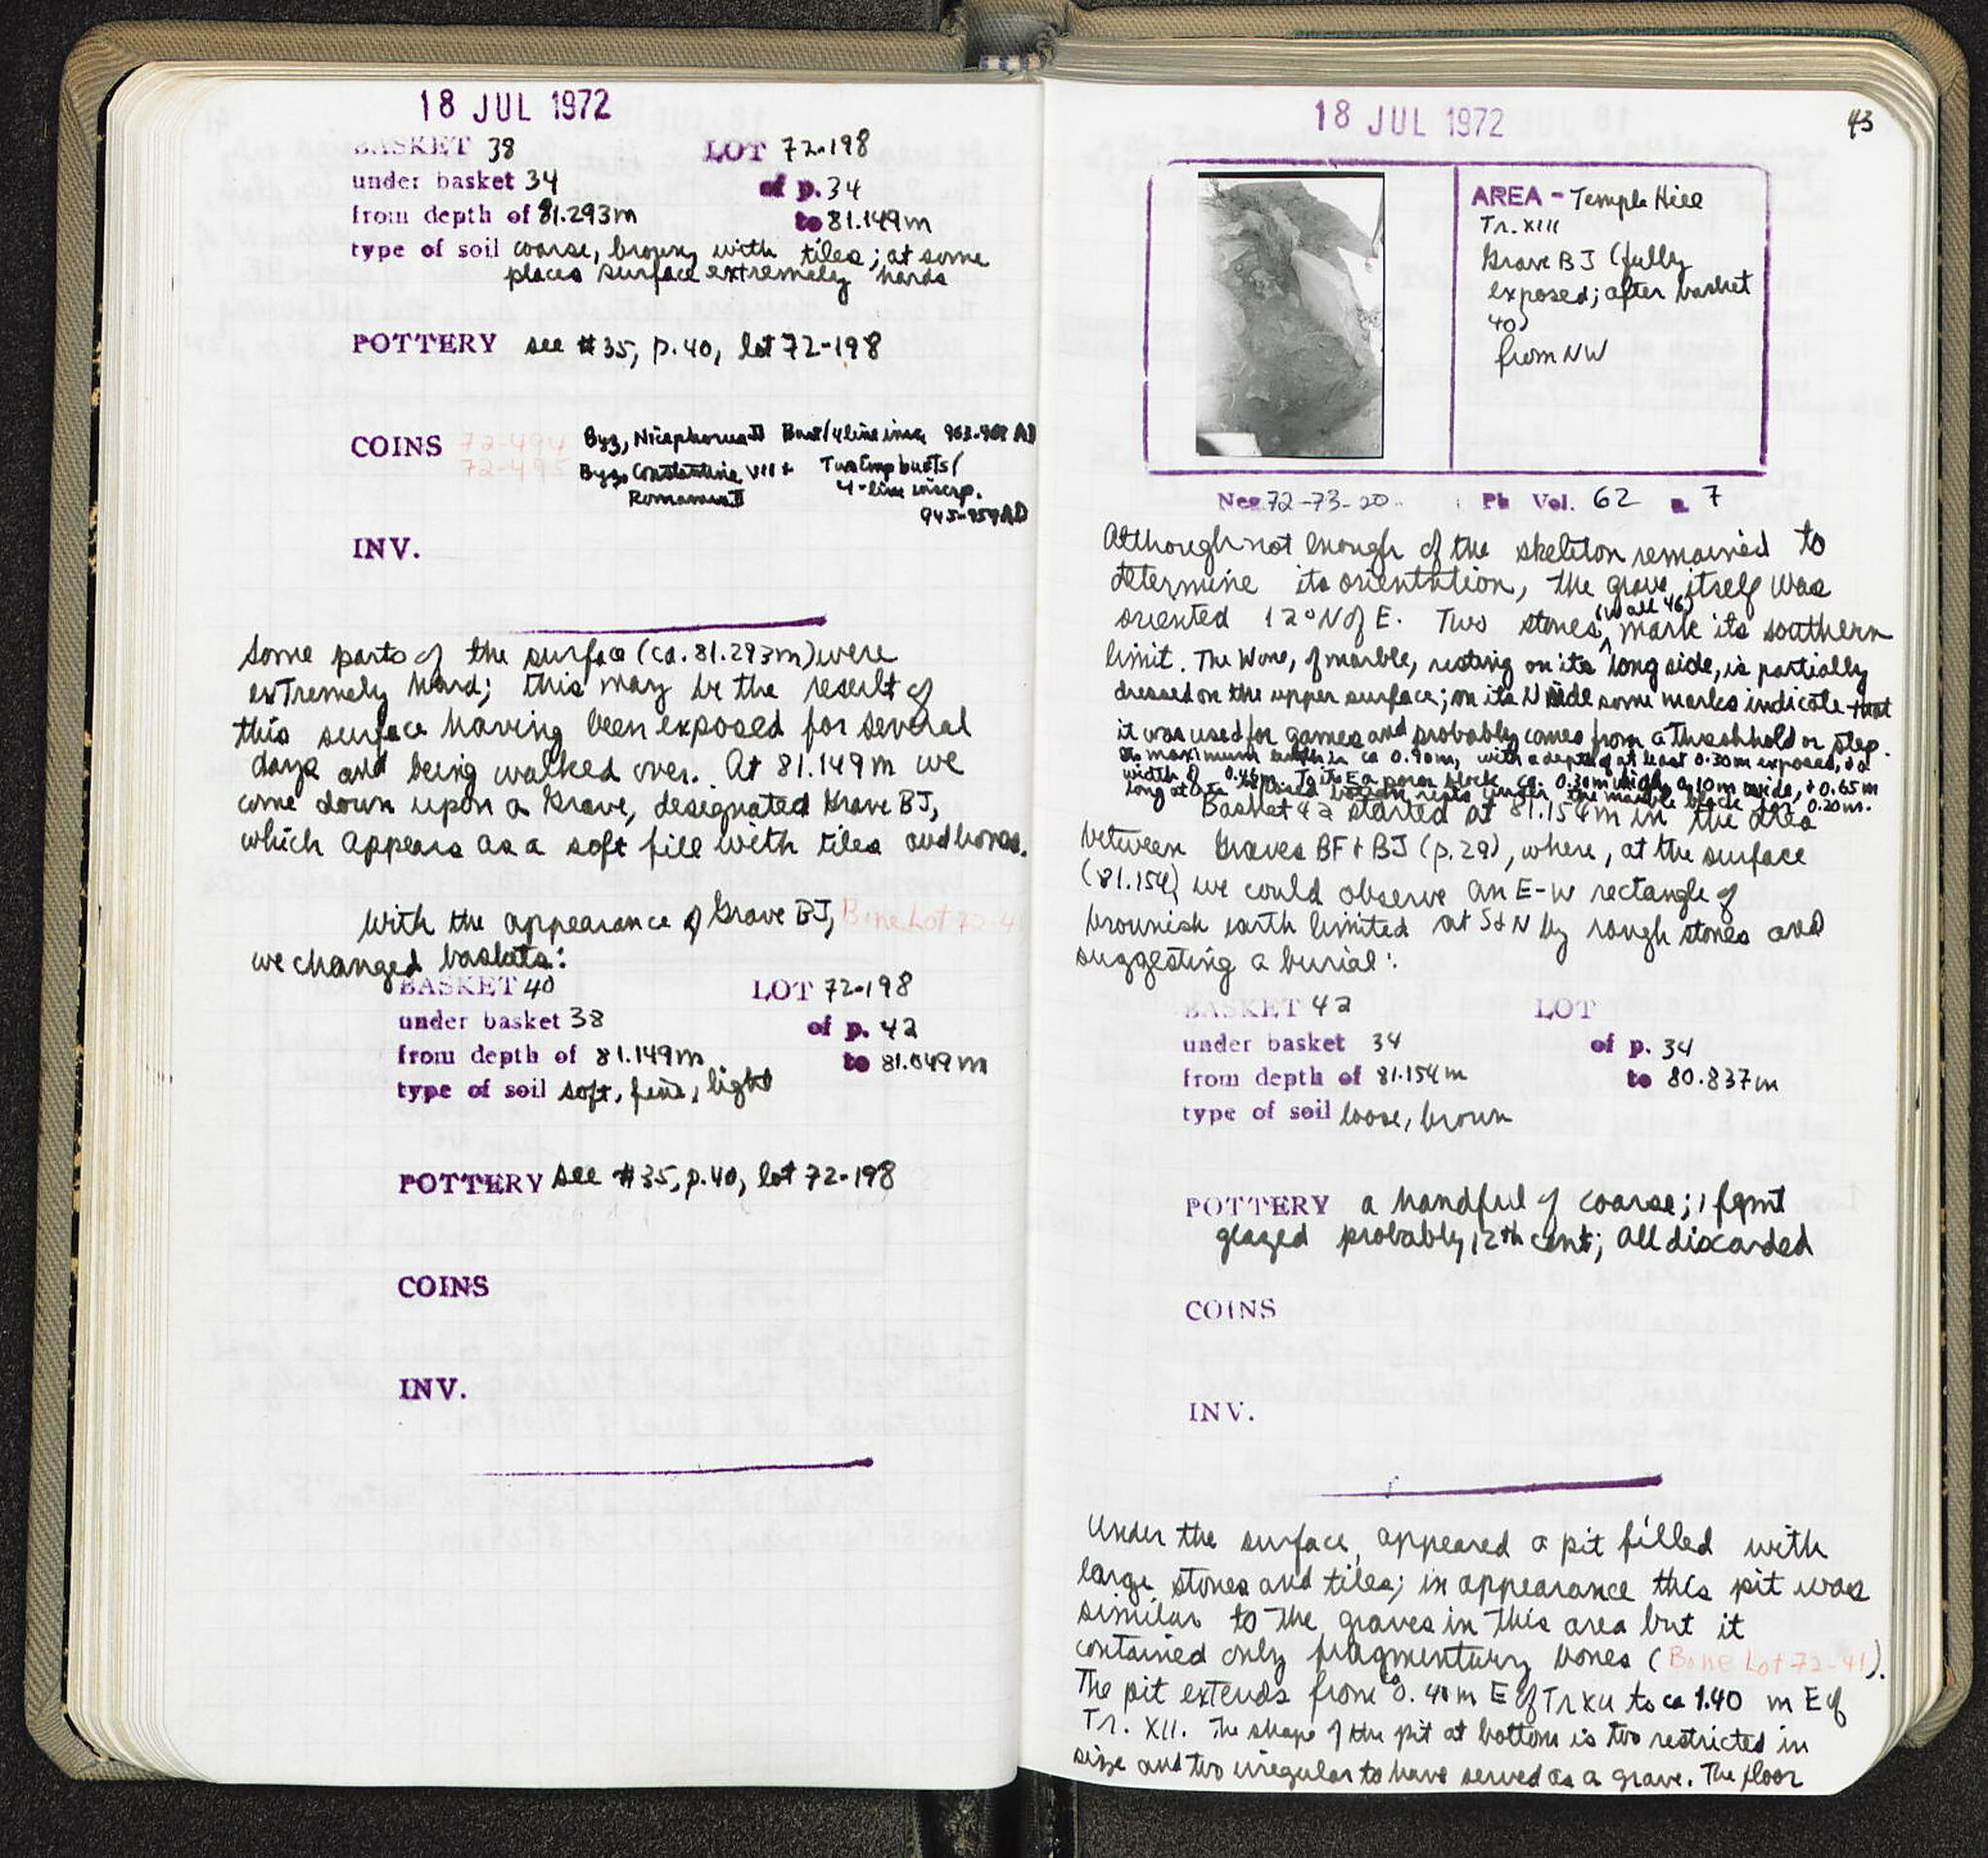 18 JUL 1972
BASKET 38 LOT 72-198
under basket 34 of p. 34
from depth of 81.293m to 81.149m
type of soil coarse, brown, with tiles; at some
places surface extremely hards
POTTERY see #35, p.40, lot 72-198
COINS 72-494 Byz, Nicephorus II Bust/4 line insc. 963-969 AD
72-495 Byz, Constantine VII + Two Emp busts/
Romanus II 4-line inscp.
945-959 AD
INV.
Some parts of the surface (ca. 81.293m) were
extremely hard; this may be the result of
this surface having been exposed for several
days and being walked over. At 81.149m we
come down upon a Grave, designated Grave BJ,
which appears as a soft fill with tiles and bones.
With the appearance of Grave BJ, Bone Lot 72-4
we changed baskets:
BASKET 40 LOT 72-198
under basket 38 of p. 42
from depth of 81.149m to 81.049m
type of soil soft, fine, light
POTTERY see #35, p.40, lot 72-198
COINS
INV.
18 JUL 1972
43
AREA - Temple Hill
Tr. XIII
Grave BJ (fully
exposed; after basket
40)
from NW
Neg. 72-73-20 Ph Vol. 62 p. 7
Although not enough of the skeleton remained to
determine its orientation, the grave itself was
oriented 12° N of E. Two stones (Wall 46) mark its southern
limit. The W one, of marble, resting on its long side, is partially
dressed on the upper surface; on its N side some marks indicate that
it was used for games and probably comes from a threshhold or step.
Its maximum length is ca 0.90m, with a depth of at least 0.30m exposed, + a
width of 0.46m. To its E a poros block, ca. 0.30m high, 0.10m wide, + 0.65m
long at its exposed bottom rests under the marble block for 0.20m.
Basket 42 started at 81.154m in the area
between Graves BF + BJ (p.29), where, at the surface
(81.154) we could observe an E-W rectangle of
brownish earth limited at S+N by rough stones and
suggesting a burial:
BASKET 42 LOT
under basket 34 of p. 34
from depth of 81.154m to 80.837m
type of soil loose, brown
POTTERY a handful of coarse; 1 fgmt
glazed probably 12th cent; All discarded
COINS
INV.
Under the surface, appeared a pit filled with
large stones and tiles; in appearance this pit was
similar to the graves in this area but it
contained only fragmentary bones (Bone Lot 72-41).
The pit extends from ca 0.40m E of Tr XII to ca 1.40 m E of
Tr. XII. The shape of the pit at bottom is too restricted in
size and too irregular to have served as a grave. The floor